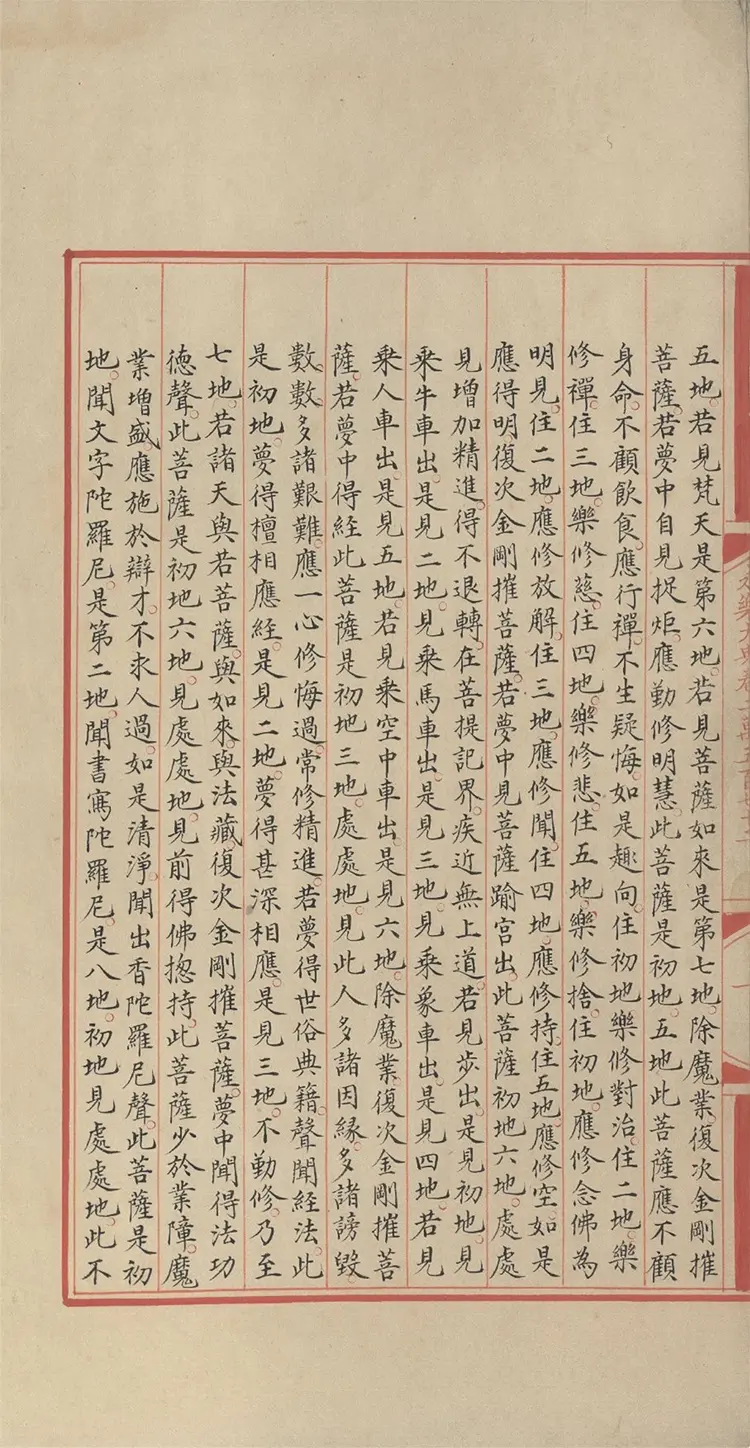 五地。若見梵天是第六地。若見菩薩如來是第七地。除魔業。復次金剛摧
菩薩。若夢中自見捉炬。應勤修明慧。此菩薩是初地。五地此菩薩應不顧
身命。不顧飲食。應行禪。不生疑悔。如是趣向。住初地樂修對治。住二地。樂
修禪。住三地。樂修慈。住四地。樂修悲。住五地。樂修捨。住初地。應修念佛為
明見。住二地。應修放解。住三地。應修聞。住四地。應修持。住五地。應修空如是
應得明復次金剛摧菩薩。若夢中見菩薩踰宮出。此菩薩初地六地。處處
見增加精進。得不退轉。在菩提記界。疾近無上道。若見步出。是見初地。見
乘牛車出。是見二地。見乘馬車出。是見三地。見乘象車出。是見四地。若見
乘人車出。是見五地。若見乘空中車出。是見六地。除魔業。復次金剛摧菩
薩。若夢中得経此菩薩是初地三地。處處地。見此人多諸因縁。多諸謗毀
數數。多諸艱難。應一心修悔過。常修精進。若夢得世俗典籍。聲聞経法。此
是初地。夢得檀相應経。是見二地。夢得甚深相應。是見三地。不勤修。乃至
七地。若諸天與若菩薩。與如來。與法藏。復次金剛摧菩薩。夢中聞得法功
德聲。此菩薩是初地六地。見處處地。見前得佛揔持。此菩薩少於業障。魔
業增盛。應施於辯才。不求人過。如是清淨。聞出香陀羅尼聲。此菩薩是初
地。聞文字陀羅尼。是第二地。聞書寫陀羅尼。是八地。初地見處處地。此不